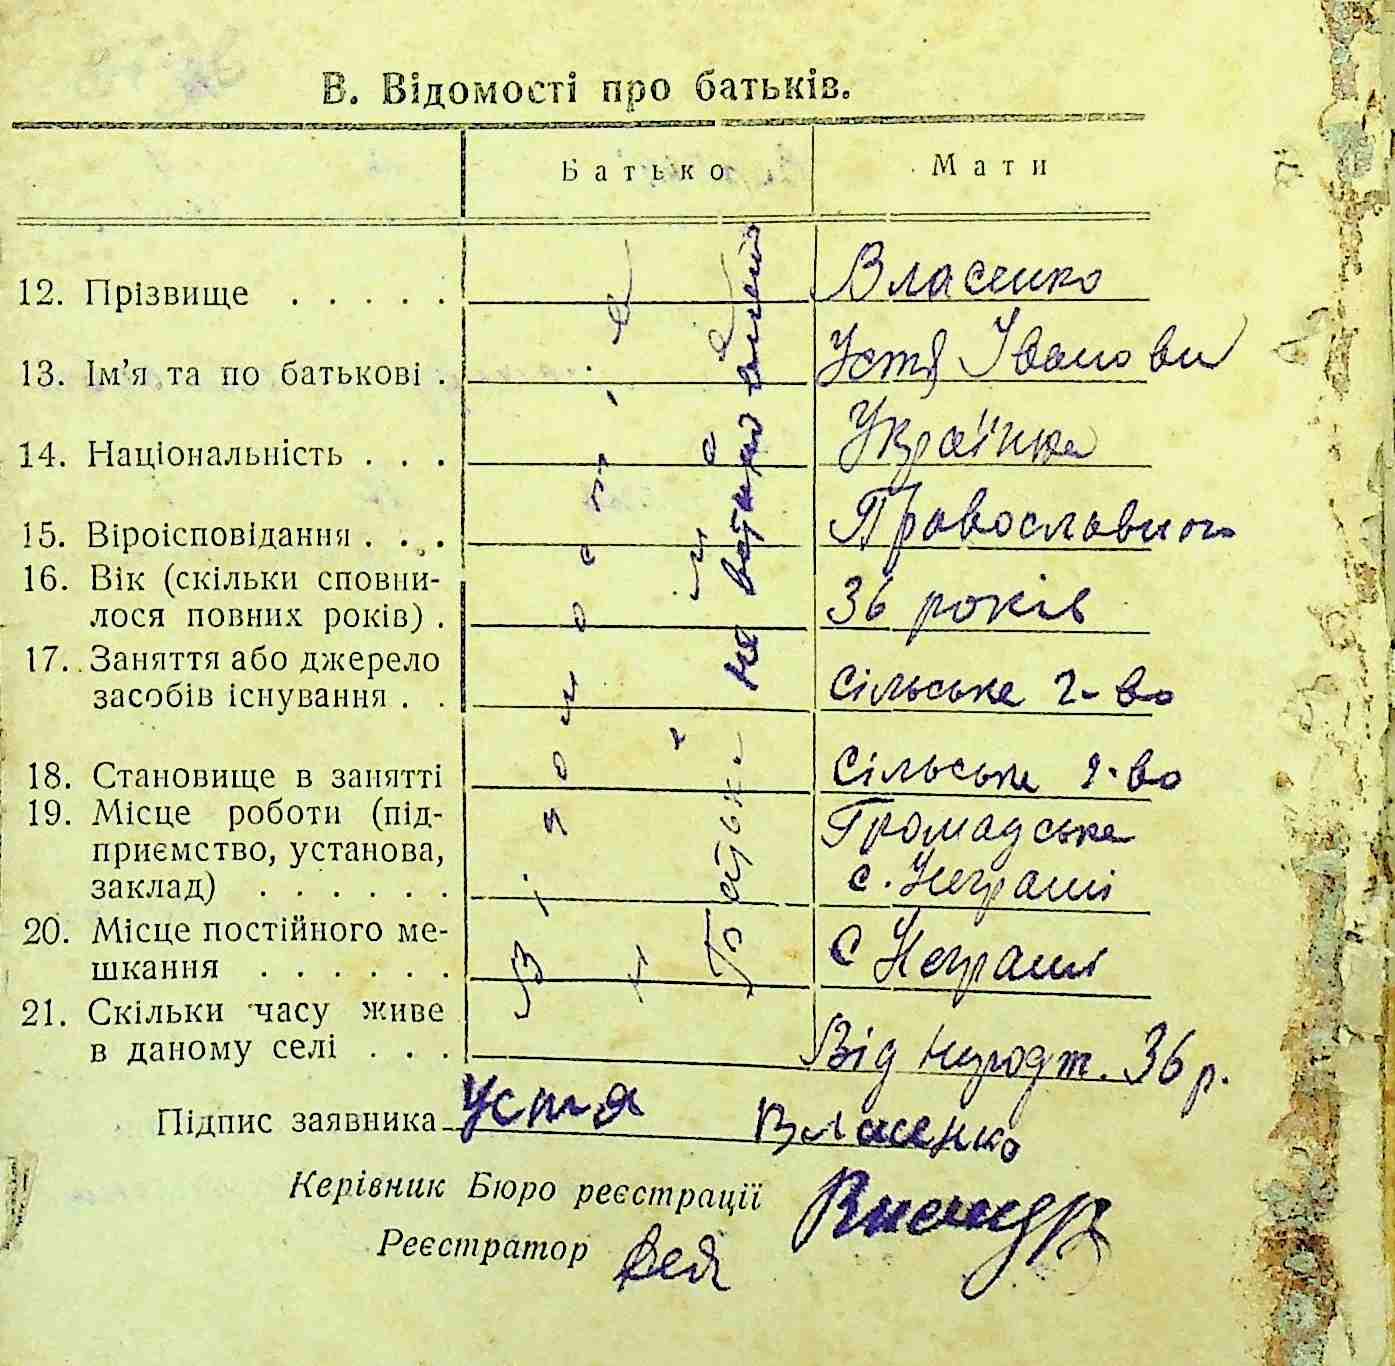 В. Відомості про батьків.
Батько Мати
12. Прізвище . . . . . Власенко
13. Ім'я та по батькові . Устя Іванови
14. Національність . . . Українка
15. Віроісповідання . . . Православного
16. Вік (скільки сповни-
лося повних років) . 36 років
17. Заняття або джерело
засобів існування . . Сільське г-во
18. Становище в занятті Сільське г-во
19. Місце роботи (під- Громадське
приємство, установа, с. Неграші
заклад) . . . . . .
20. Місце постійного ме- с Неграші
шкання . . . . . .
21. Скільки часу живе
в даному селі . . . Від народж. 36 р.
Зі
Батьки не
Підпис заявника Устя Власенко
Керівник Бюро реєстрації
Реєстратор